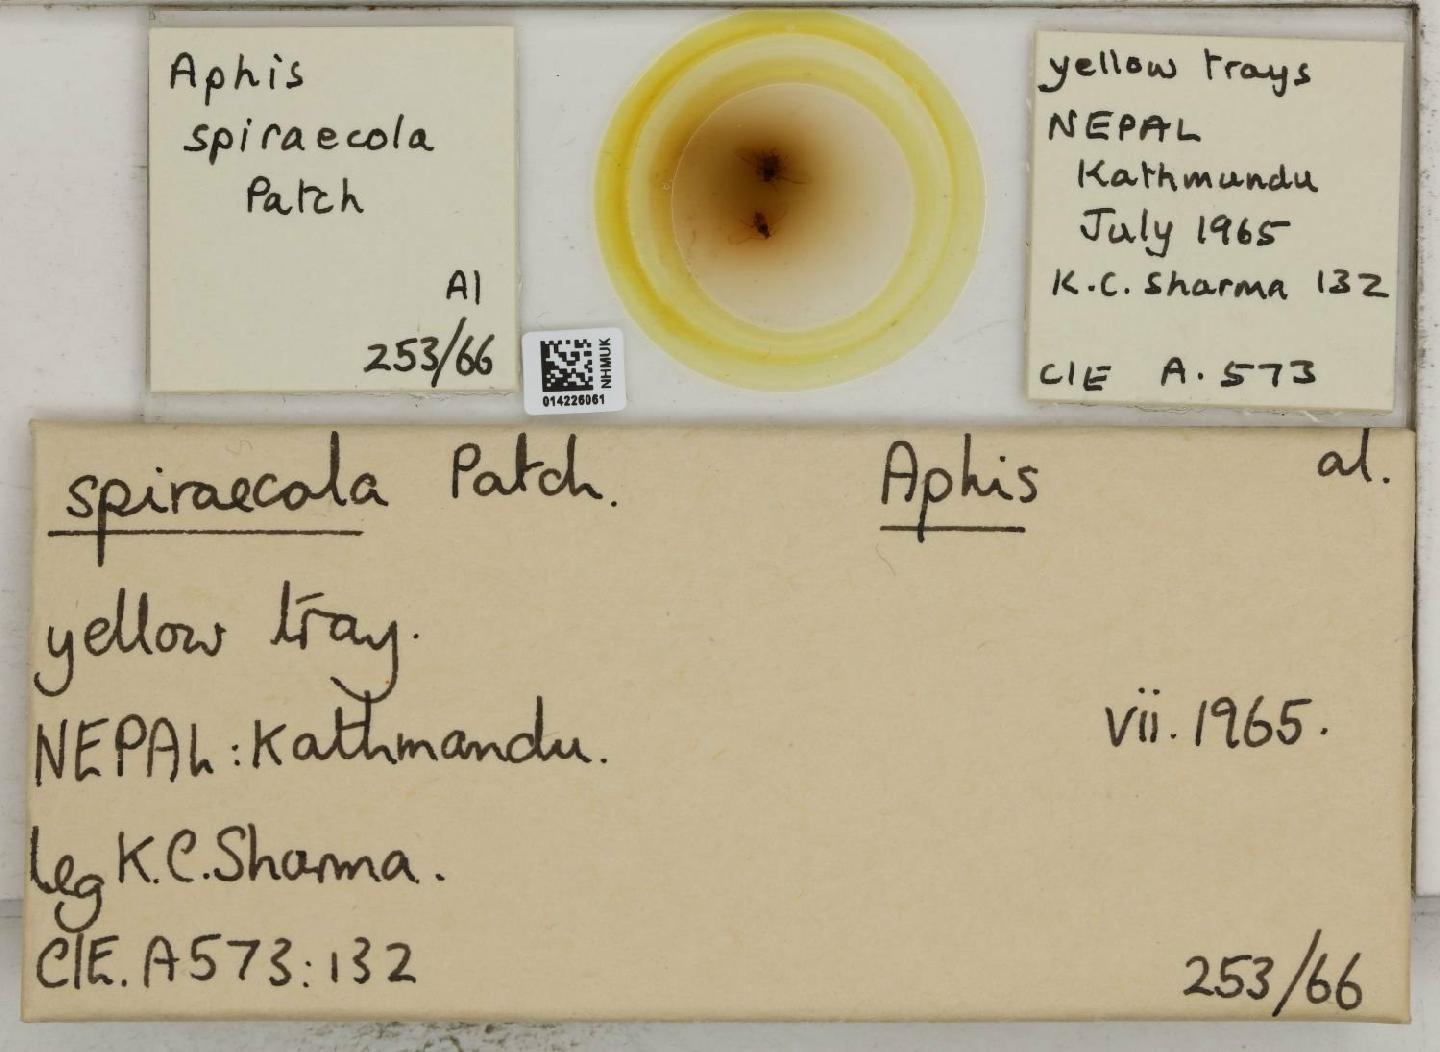 Aphis
spiraecola
Patch
Al
253/66
NHMUK
014226061
yellow trays
NEPAL
Kathmundu
July 1965
K.C. Sharma 132
CIE A. 573
spiraecola Patch. Aphis al.
yellow tray.
NEPAL: Kathmandu. vii. 1965.
leg K.C. Sharma.
CIE. A573:132 253/66